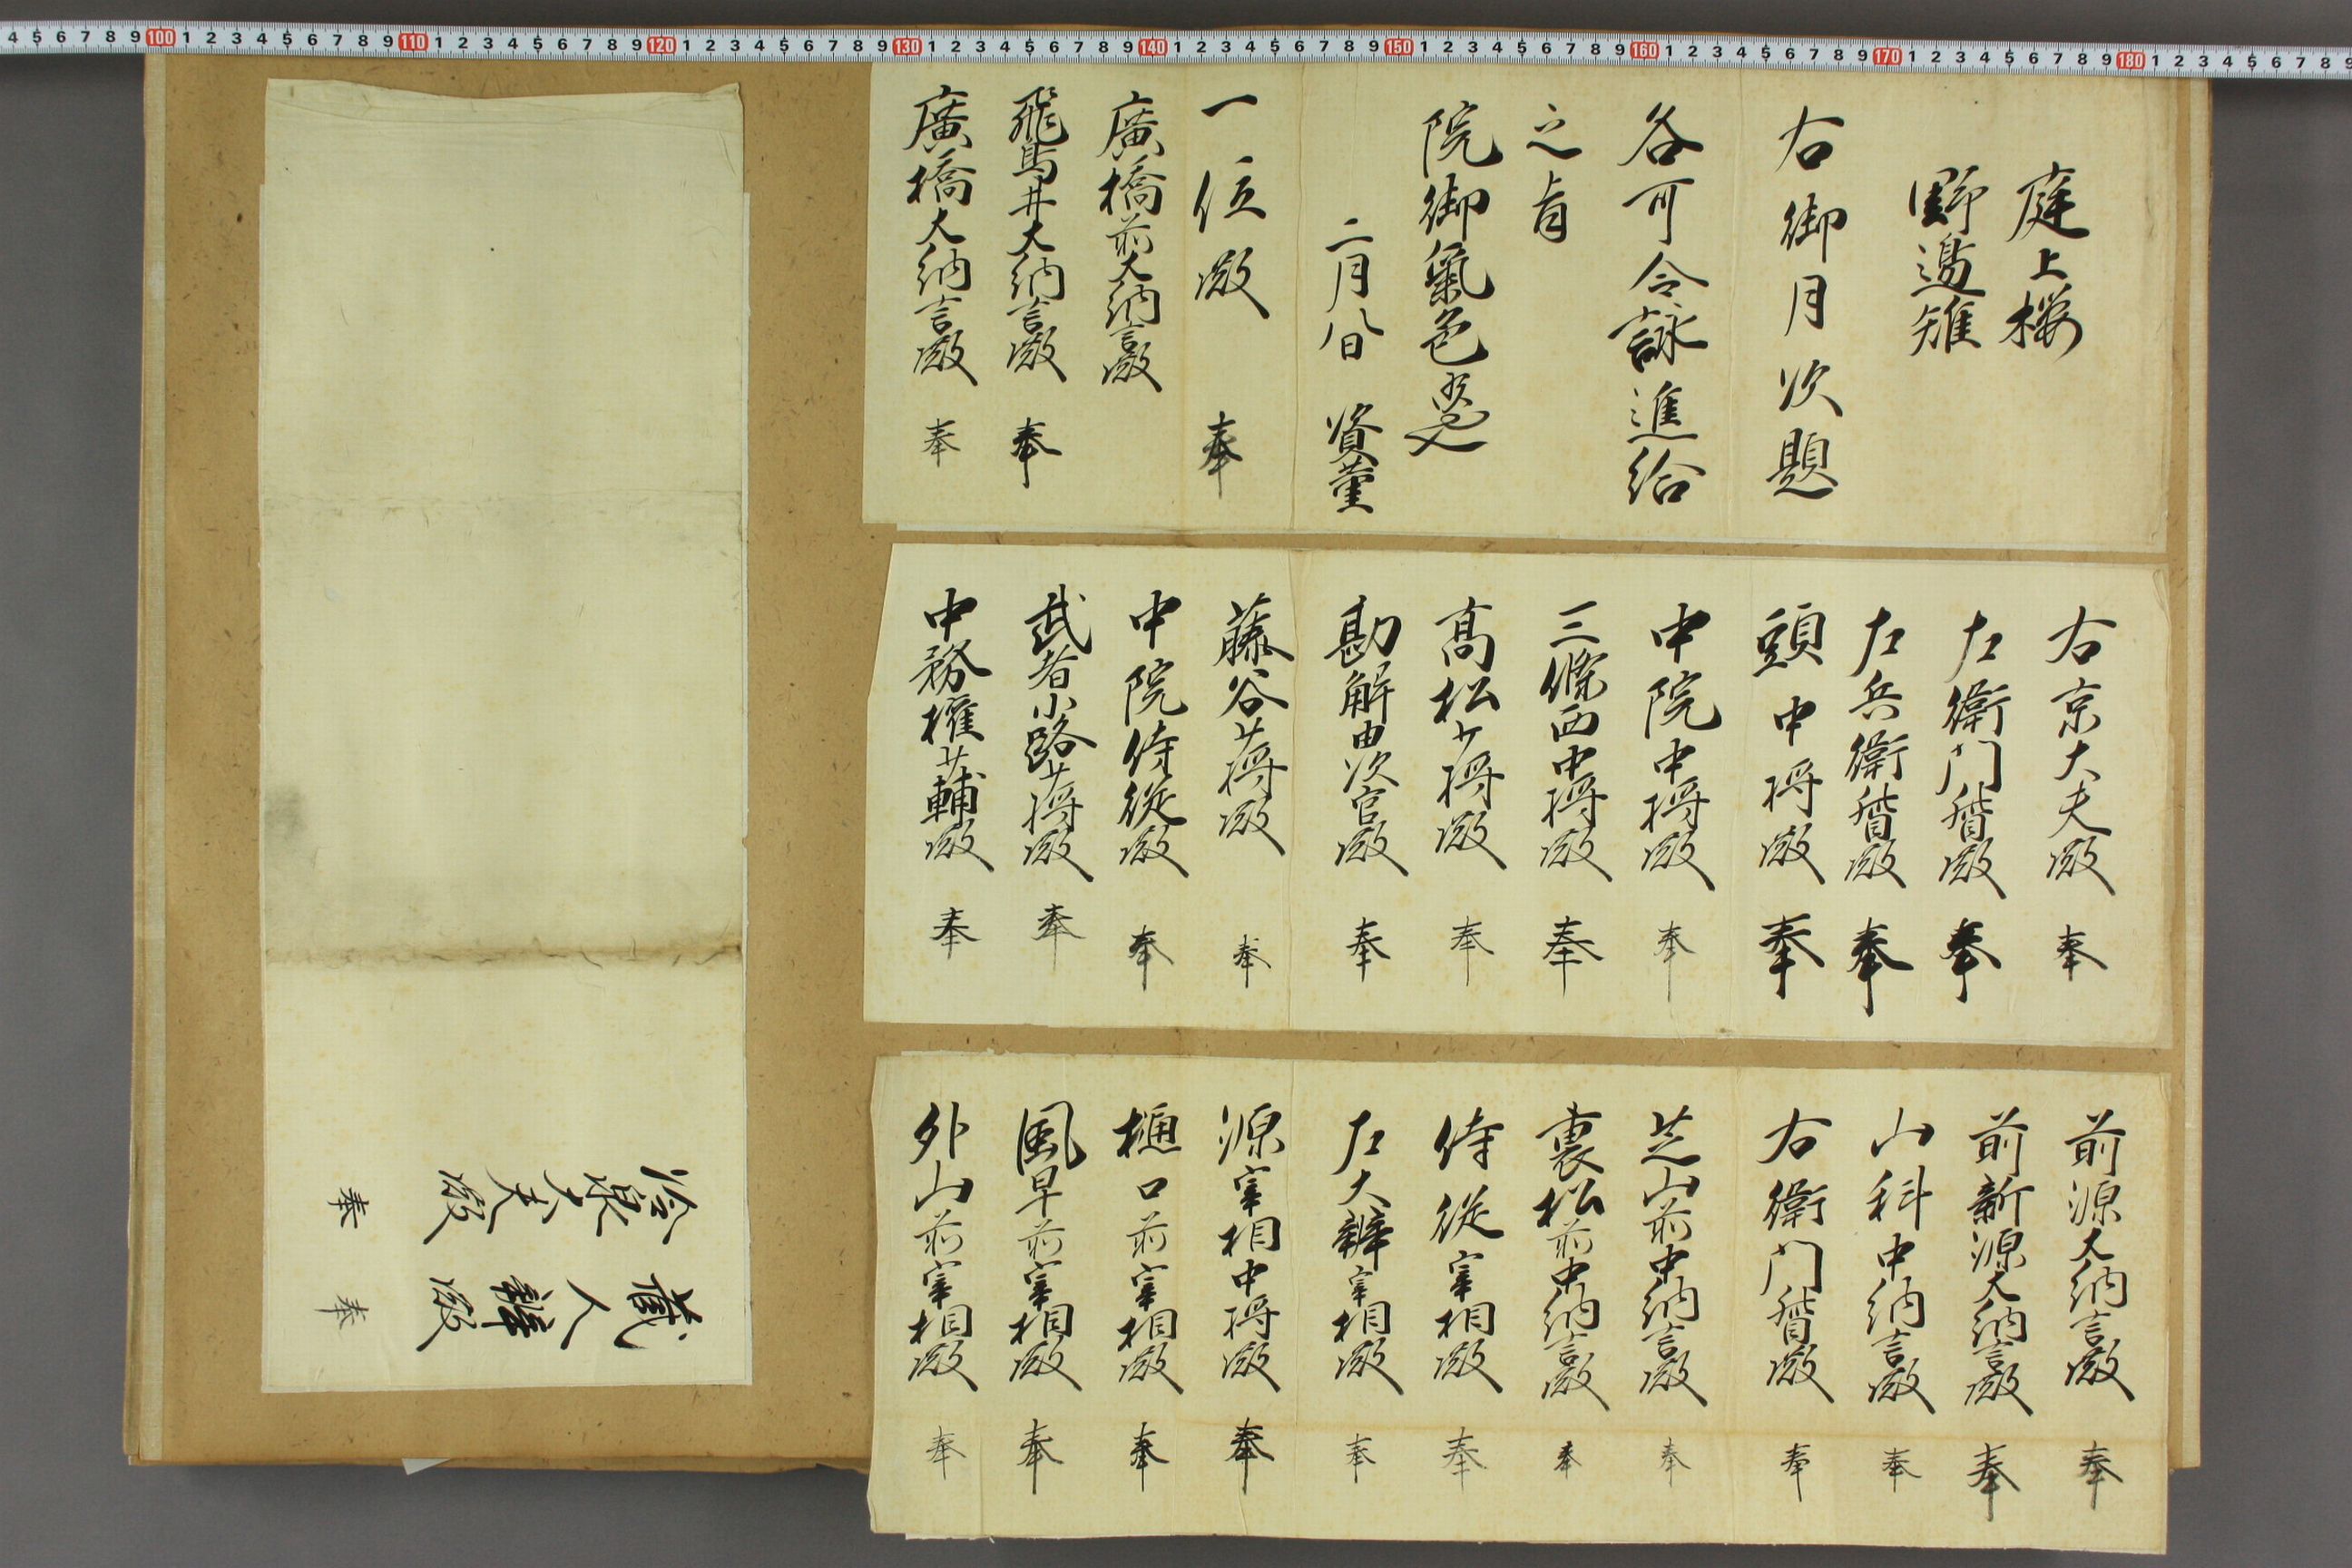 庭上桜
野邊雉
右御月次題
各可令詠進給
之旨
院御氣色候也
二月八日 資董
一位殿 奉
廣橋前大納言殿
飛鳥井大納言殿 奉
廣橋大納言殿 奉
右京大夫殿 奉
左衛門督殿 奉
左兵衛督殿 奉
頭中将殿 奉
中院中将殿 奉
三條西中将殿 奉
高松少将殿 奉
勘解由次官殿 奉
藤谷少将殿 奉
中院侍從殿 奉
武者小路少将殿 奉
中務権少輔殿 奉
前源大納言殿 奉
前新源大納言殿 奉
山科中納言殿 奉
右衛門督殿 奉
芝山前中納言殿 奉
裏松前中納言殿 奉
侍從宰相殿 奉
左大辨宰相殿 奉
源宰相中将殿 奉
樋口前宰相殿 奉
風早前宰相殿 奉
外山前宰相殿 奉
冷泉大夫殿 奉
蔵人辨殿 奉
4 5 6 7 8 9 100 1 2 3 4 5 6 7 8 9 110 1 2 3 4 5 6 7 8 9 120 1 2 3 4 5 6 7 8 9 130 1 2 3 4 5 6 7 8 9 140 1 2 3 4 5 6 7 8 9 150 1 2 3 4 5 6 7 8 9 160 1 2 3 4 5 6 7 8 9 170 1 2 3 4 5 6 7 8 9 180 1 2 3 4 5 6 7 8 9